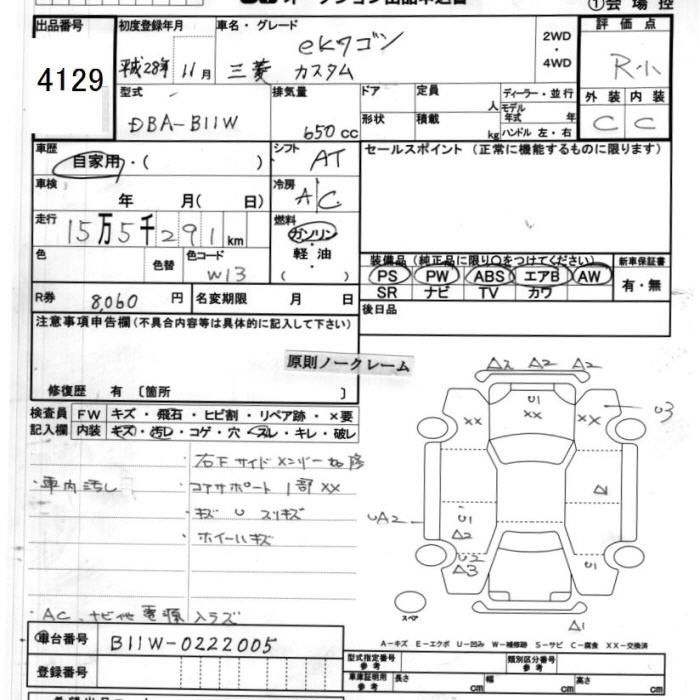 オークション出品申込書
①会場控
出品番号 初度登録年月 車名・グレード 2WD・4WD 評価点
4129 平成28年 11月 三菱 eKワゴン カスタム R-小
型式 排気量 ドア 定員 人 ディーラー・並行 外装 内装
DBA-B11W 650cc 形状 積載 kg モデル年式 年 C C
ハンドル 左・右
車歴 シフト セールスポイント(正常に機能するものに限ります)
自家用・( ) AT
車検 年 月(日) 冷房 AC
走行 15万5千291km 燃料 ガソリン・軽油・( )
色 色替 色コード W13
装備品(純正品に限り○をつけてください) 新車保証書
PS PW ABS エアB AW 有・無
SR ナビ TV カワ
R券 8,060円 名変期限 月 日 後日品
注意事項申告欄(不具合内容等は具体的に記入して下さい)
原則ノークレーム
修復歴 有〔箇所 〕
検査員記入欄 FW キズ・飛石・ヒビ割・リペア跡・×要
内装 キズ・汚し・コゲ・穴・スレ・キレ・破レ
△2 △2 A2
U1 XX XX XX U3
右Fサイドメンバー
・車内汚し コアサポート1部XX
キズ U スリキズ
ホイールキズ
UA2 U1 △2 △1
U2 △3 U1
・AC、ナビ他電源入ラズ
スペア △1
A-キズ E-エクボ U-凹み W-補修跡 S-サビ C-腐食 XX-交換済
車台番号 B11W-0222005
登録番号
型式指定番号 参考 類別区分番号 参考
車庫証明用 参考 長さ cm 幅 cm 高さ cm